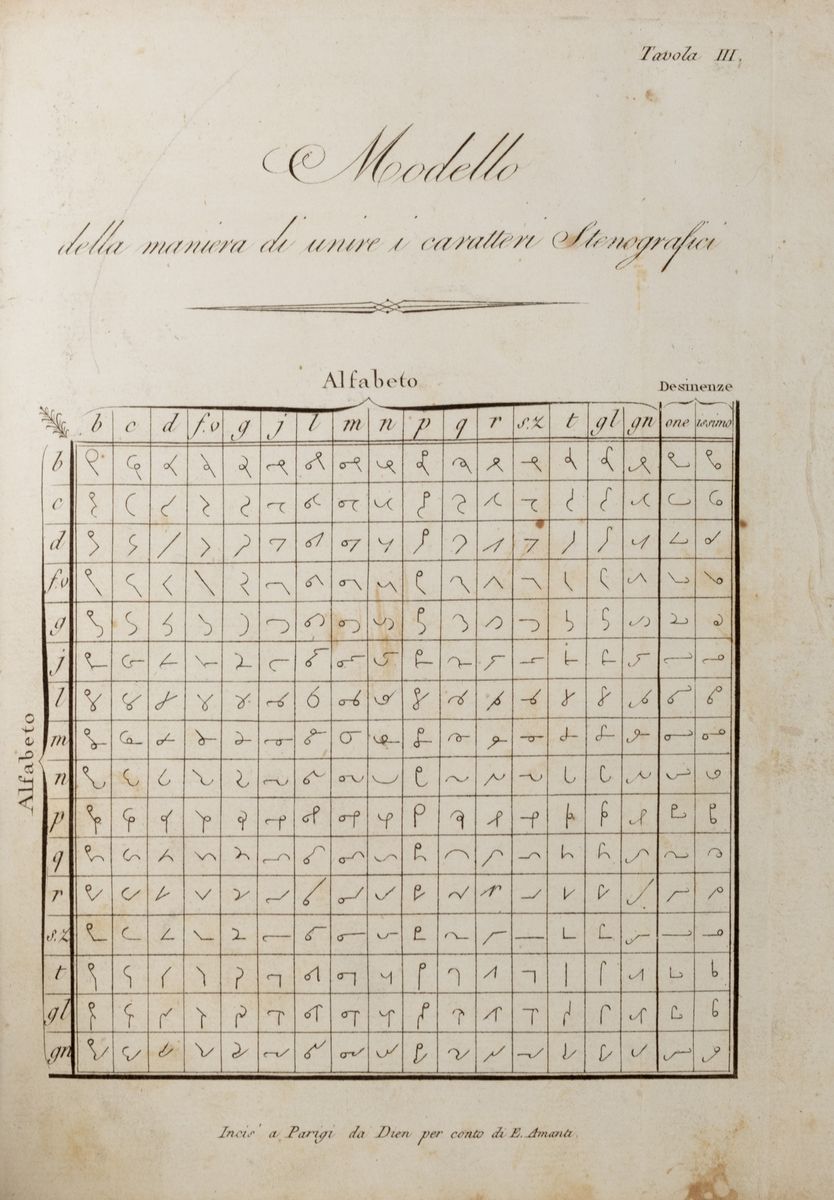 Tavola III.
Modello
della maniera di unire i caratteri Stenografici
Alfabeto
Desinenze
b c d f.v g j l m n p q r s.z t gl gn one issimo
Alfabeto
b
c
d
f.v
g
j
l
m
n
p
q
r
s.z
t
gl
gn
Incis' a Parigi da Dien per conto di E. Amanti.